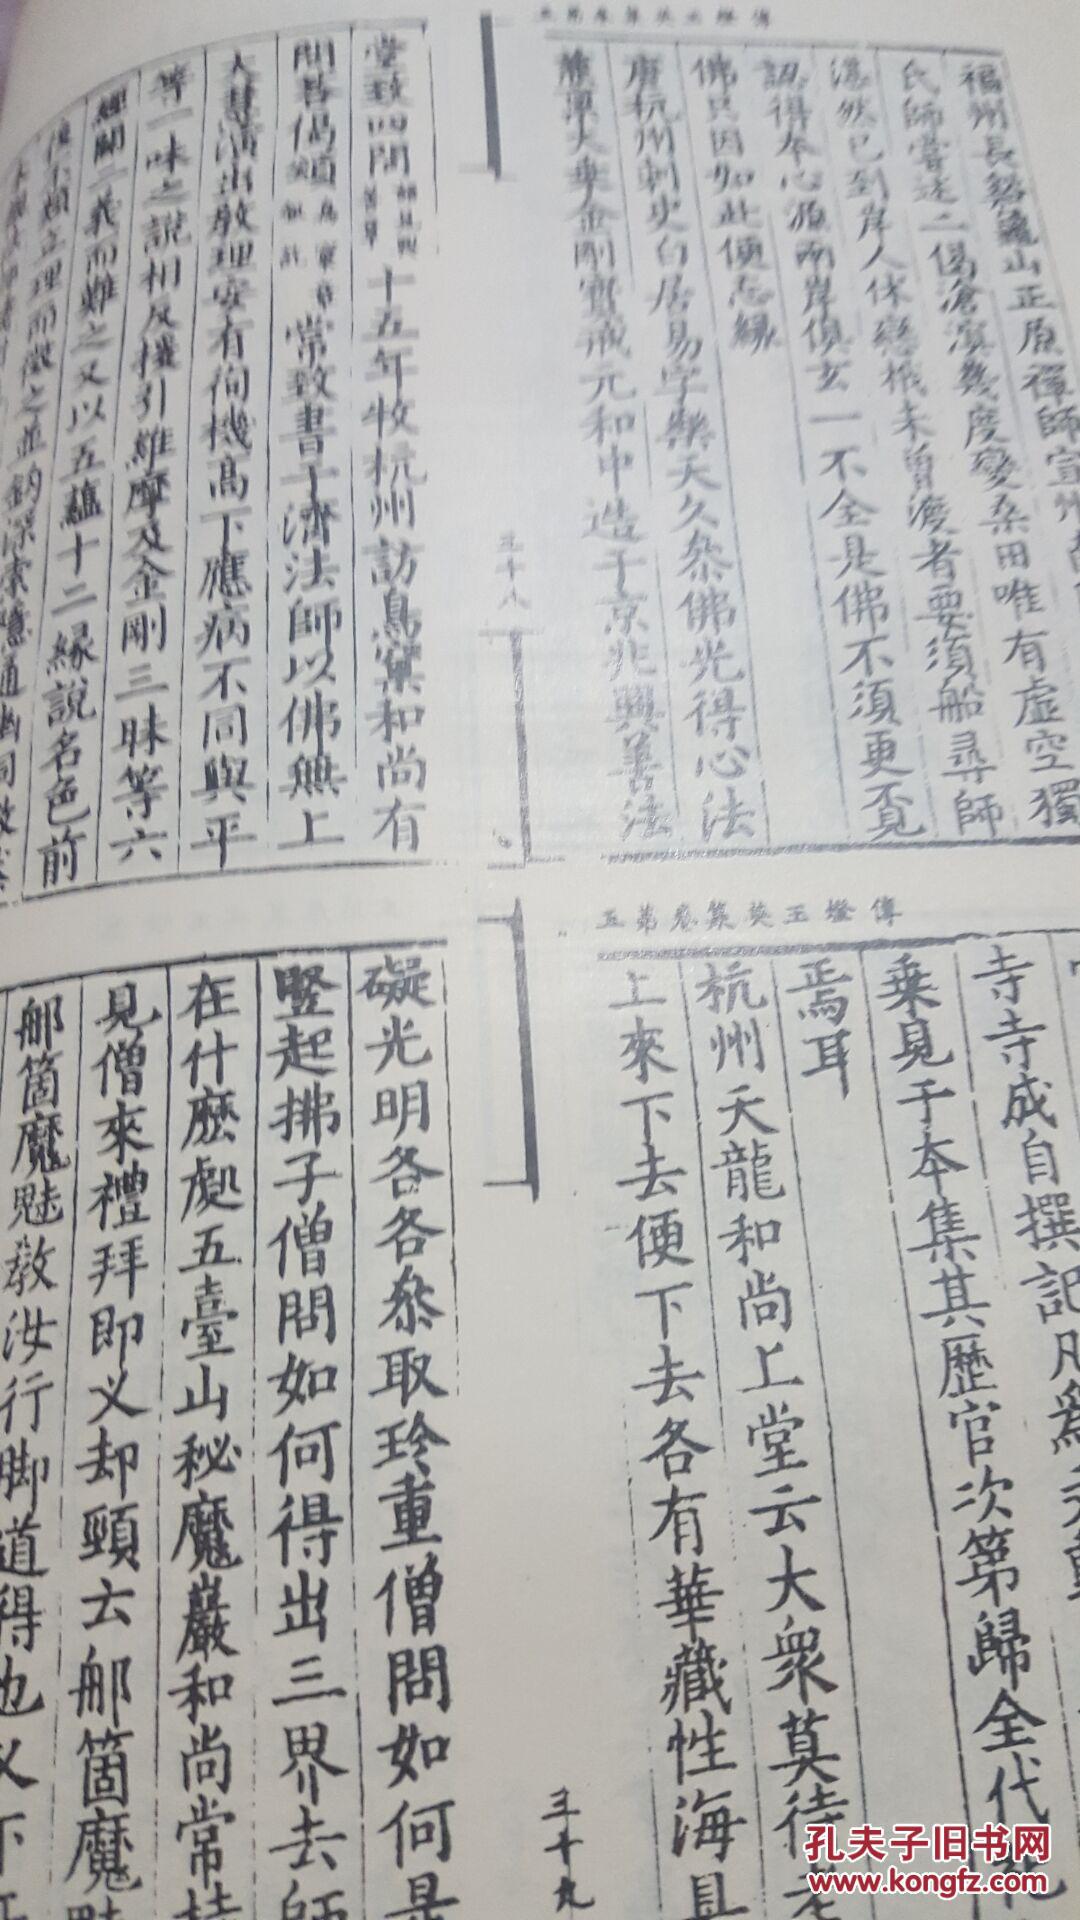 傳燈玉英集卷第五
福州長谿龜山正原禪師宣州
氏師嘗述二偈滄溟幾度變桑田唯有虛空獨
湛然已到岸人休戀栰未曾渡者要須船尋師
認得本心源兩岸俱玄一不全是佛不須更覓
佛只因如此便忘緣
唐杭州刺史白居易字樂天久叅佛光得心法
兼稟大乘金剛寶戒元和中造于京兆興善法
三十八
堂致四問十五年牧杭州訪鳥窠和尚有
問荅偈頌常致書于濟法師以佛無上
大慧演出教理安有徇機高下應病不同與平
等一味之說相反援引維摩及金剛三昧等六
經闢二義而難之又以五蘊十二緣說名色前
後不類立理而徵之並鈎深索隱通幽洞
傳燈玉英集卷第五
寺寺成自撰記凡爲
乗見于本集其歷官次第歸全代
焉耳
杭州天龍和尚上堂云大衆莫待
上來下去便下去各有華藏性海具
三十九
礙光明各各叅取珍重僧問如何是
豎起拂子僧問如何得出三界去師
在什麽處五臺山秘魔巖和尚常持
見僧來禮拜即乂却頸云那箇魔魅
那箇魔魅教汝行脚道得也乂下
孔夫子旧书网
www.kongfz.com